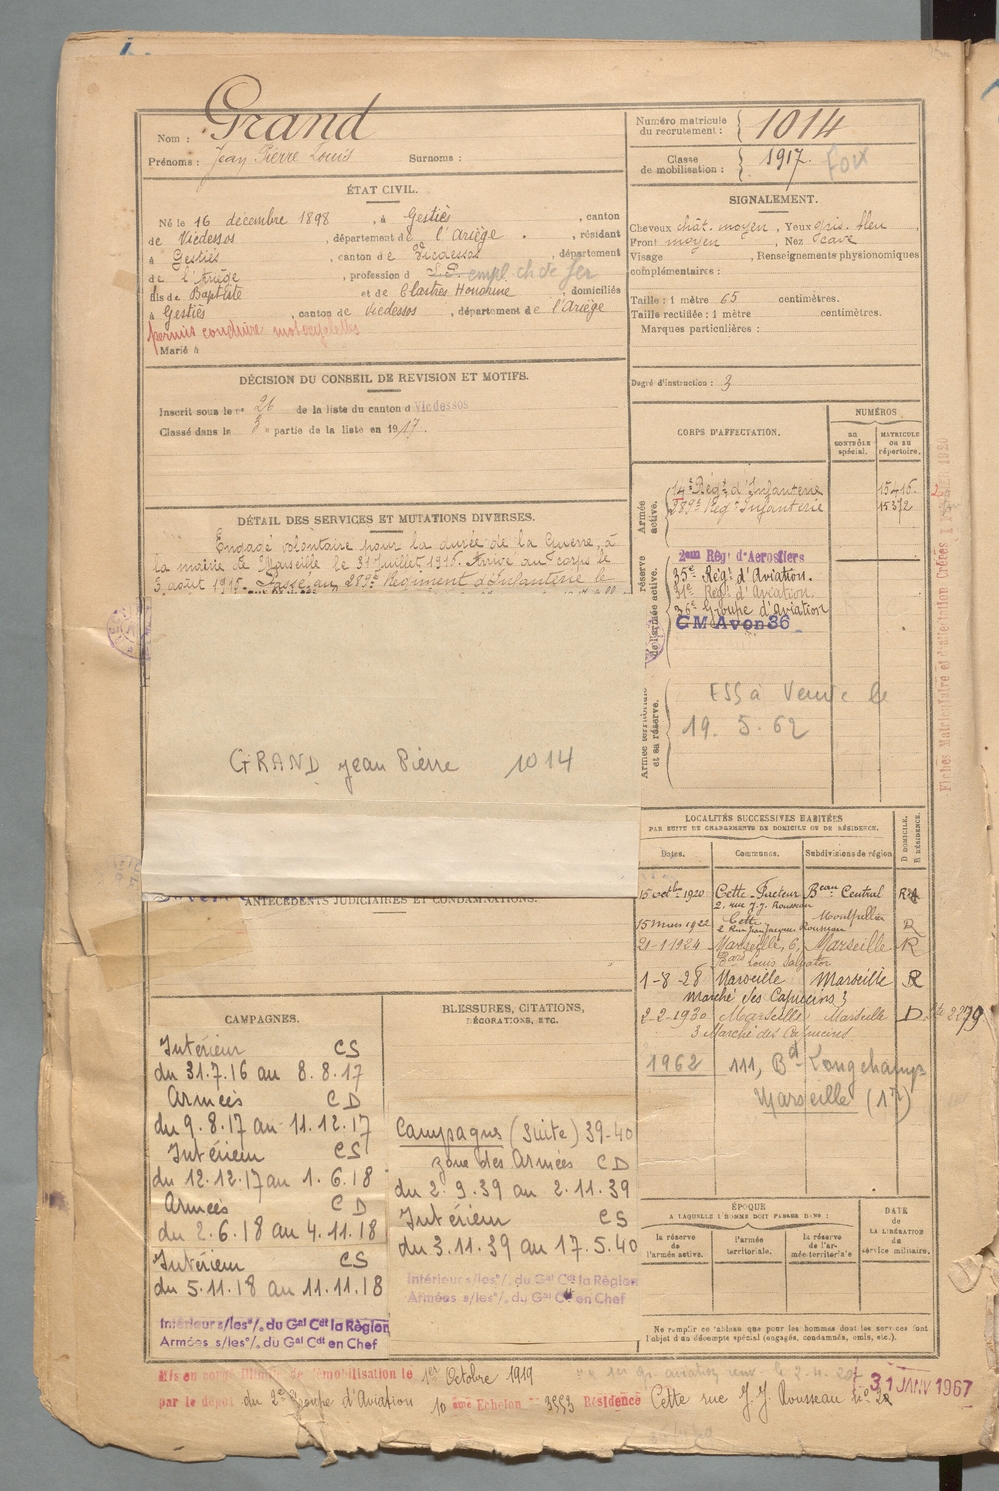 Nom : Grand
Prénoms : Jean Pierre Louis Surnoms :
ÉTAT CIVIL.
Né le 16 décembre 1898, à Gestiès, canton
de Vicdessos, département de l'Ariège, résidant
à Gestiès, canton de Vicdessos, département
de l'Ariège, profession d empl ch de fer
fils de Baptiste et de Clastres Honorine, domiciliés
à Gestiès, canton de Vicdessos, département de l'Ariège
permis conduire motocyclettes
Marié à
DÉCISION DU CONSEIL DE REVISION ET MOTIFS.
Inscrit sous le n° 26 de la liste du canton d Vicdessos
Classé dans la 3 e partie de la liste en 1917.
DÉTAIL DES SERVICES ET MUTATIONS DIVERSES.
Engagé volontaire pour la durée de la Guerre, à
la mairie de Marseille le 31 juillet 1916. Arrivé au corps le
3 août 1916. Passé au 389e Régiment d'Infanterie le
GRAND Jean Pierre 1014
ANTÉCÉDENTS JUDICIAIRES ET CONDAMNATIONS.
CAMPAGNES.
Intérieur CS
du 31.7.16 au 8.8.17
Armées CD
du 9.8.17 au 11.12.17
Intérieur CS
du 12.12.17 au 1.6.18
Armées CD
du 2.6.18 au 4.11.18
Intérieur CS
du 5.11.18 au 11.11.18
Intérieur s/les°/. du Gal Cdt la Région
Armées s/les°/. du Gal Cdt en Chef
BLESSURES, CITATIONS,
DÉCORATIONS, ETC.
Campagns (suite) 39-40
zone des Armées CD
du 2.9.39 au 2.11.39
Intérieur CS
du 3.11.39 au 17.5.40
Intérieur s/les°/. du Gal Cdt la Région
Armées s/les°/. du Gal Cdt en Chef
Numéro matricule
du recrutement : 1014
Classe
de mobilisation : 1917. Foix
SIGNALEMENT.
Cheveux chât. moyen, Yeux gris. bleu,
Front moyen, Nez
Visage, Renseignements physionomiques
complémentaires :
Taille : 1 mètre 65 centimètres.
Taille rectifiée : 1 mètre centimètres.
Marques particulières :
Degré d'instruction : 3
CORPS D'AFFECTATION.
NUMÉROS
au CONTRÔLE spécial.
MATRICULE OU AU répertoire.
Armée active.
14e Régt d'Infanterie 15416.
389e Régt Infanterie 15372
réserve de l'armée active.
2eme Régt d'Aerostiers
35e Régt d'Aviation.
31e Régt d'Aviation.
36e Groupe d'aviation
GM Avon 36
Armée territoriale et sa réserve.
19. 5. 62
Fiches Matriculaire et d'affectation Créées
LOCALITÉS SUCCESSIVES HABITÉES
PAR SUITE DE CHANGEMENTS DE DOMICILE OU DE RÉSIDENCE.
Dates. Communes. Subdivisions de région
D DOMICILE. R RÉSIDENCE.
15 octbre 1920 Cette - Facteur Beau Central
2. rue J.J. Rousseau
15 mars 1922 Cette Montpellier R
2 Rue Jean Jacques Rousseau
21-1-1924 Marseille, 6, Marseille R
Bard Louis Salvator
1-8-28 Marseille Marseille R
marché des Capucins 3
2-2-1930 Marseille Marseille D
3 Marché des Capucins
1962 111, Bd Longchamp
Marseille (1er)
ÉPOQUE
A LAQUELLE L'HOMME DOIT PASSER DANS :
la réserve de l'armée active.
l'armée territoriale.
la réserve de l'armée territoriale
DATE de LA LIBÉRATION du service militaire.
Ne remplir ce tableau que pour les hommes dont les services font
l'objet d'un décompte spécial (engagés, condamnés, omis, etc.).
Mis en congé illimité de démobilisation le 1er Octobre 1919
31 JANV 1967
par le dépôt du 2e Groupe d'Aviation 10 ème Echelon n° 3553 Résidence Cette rue J. J. Rousseau n° 2